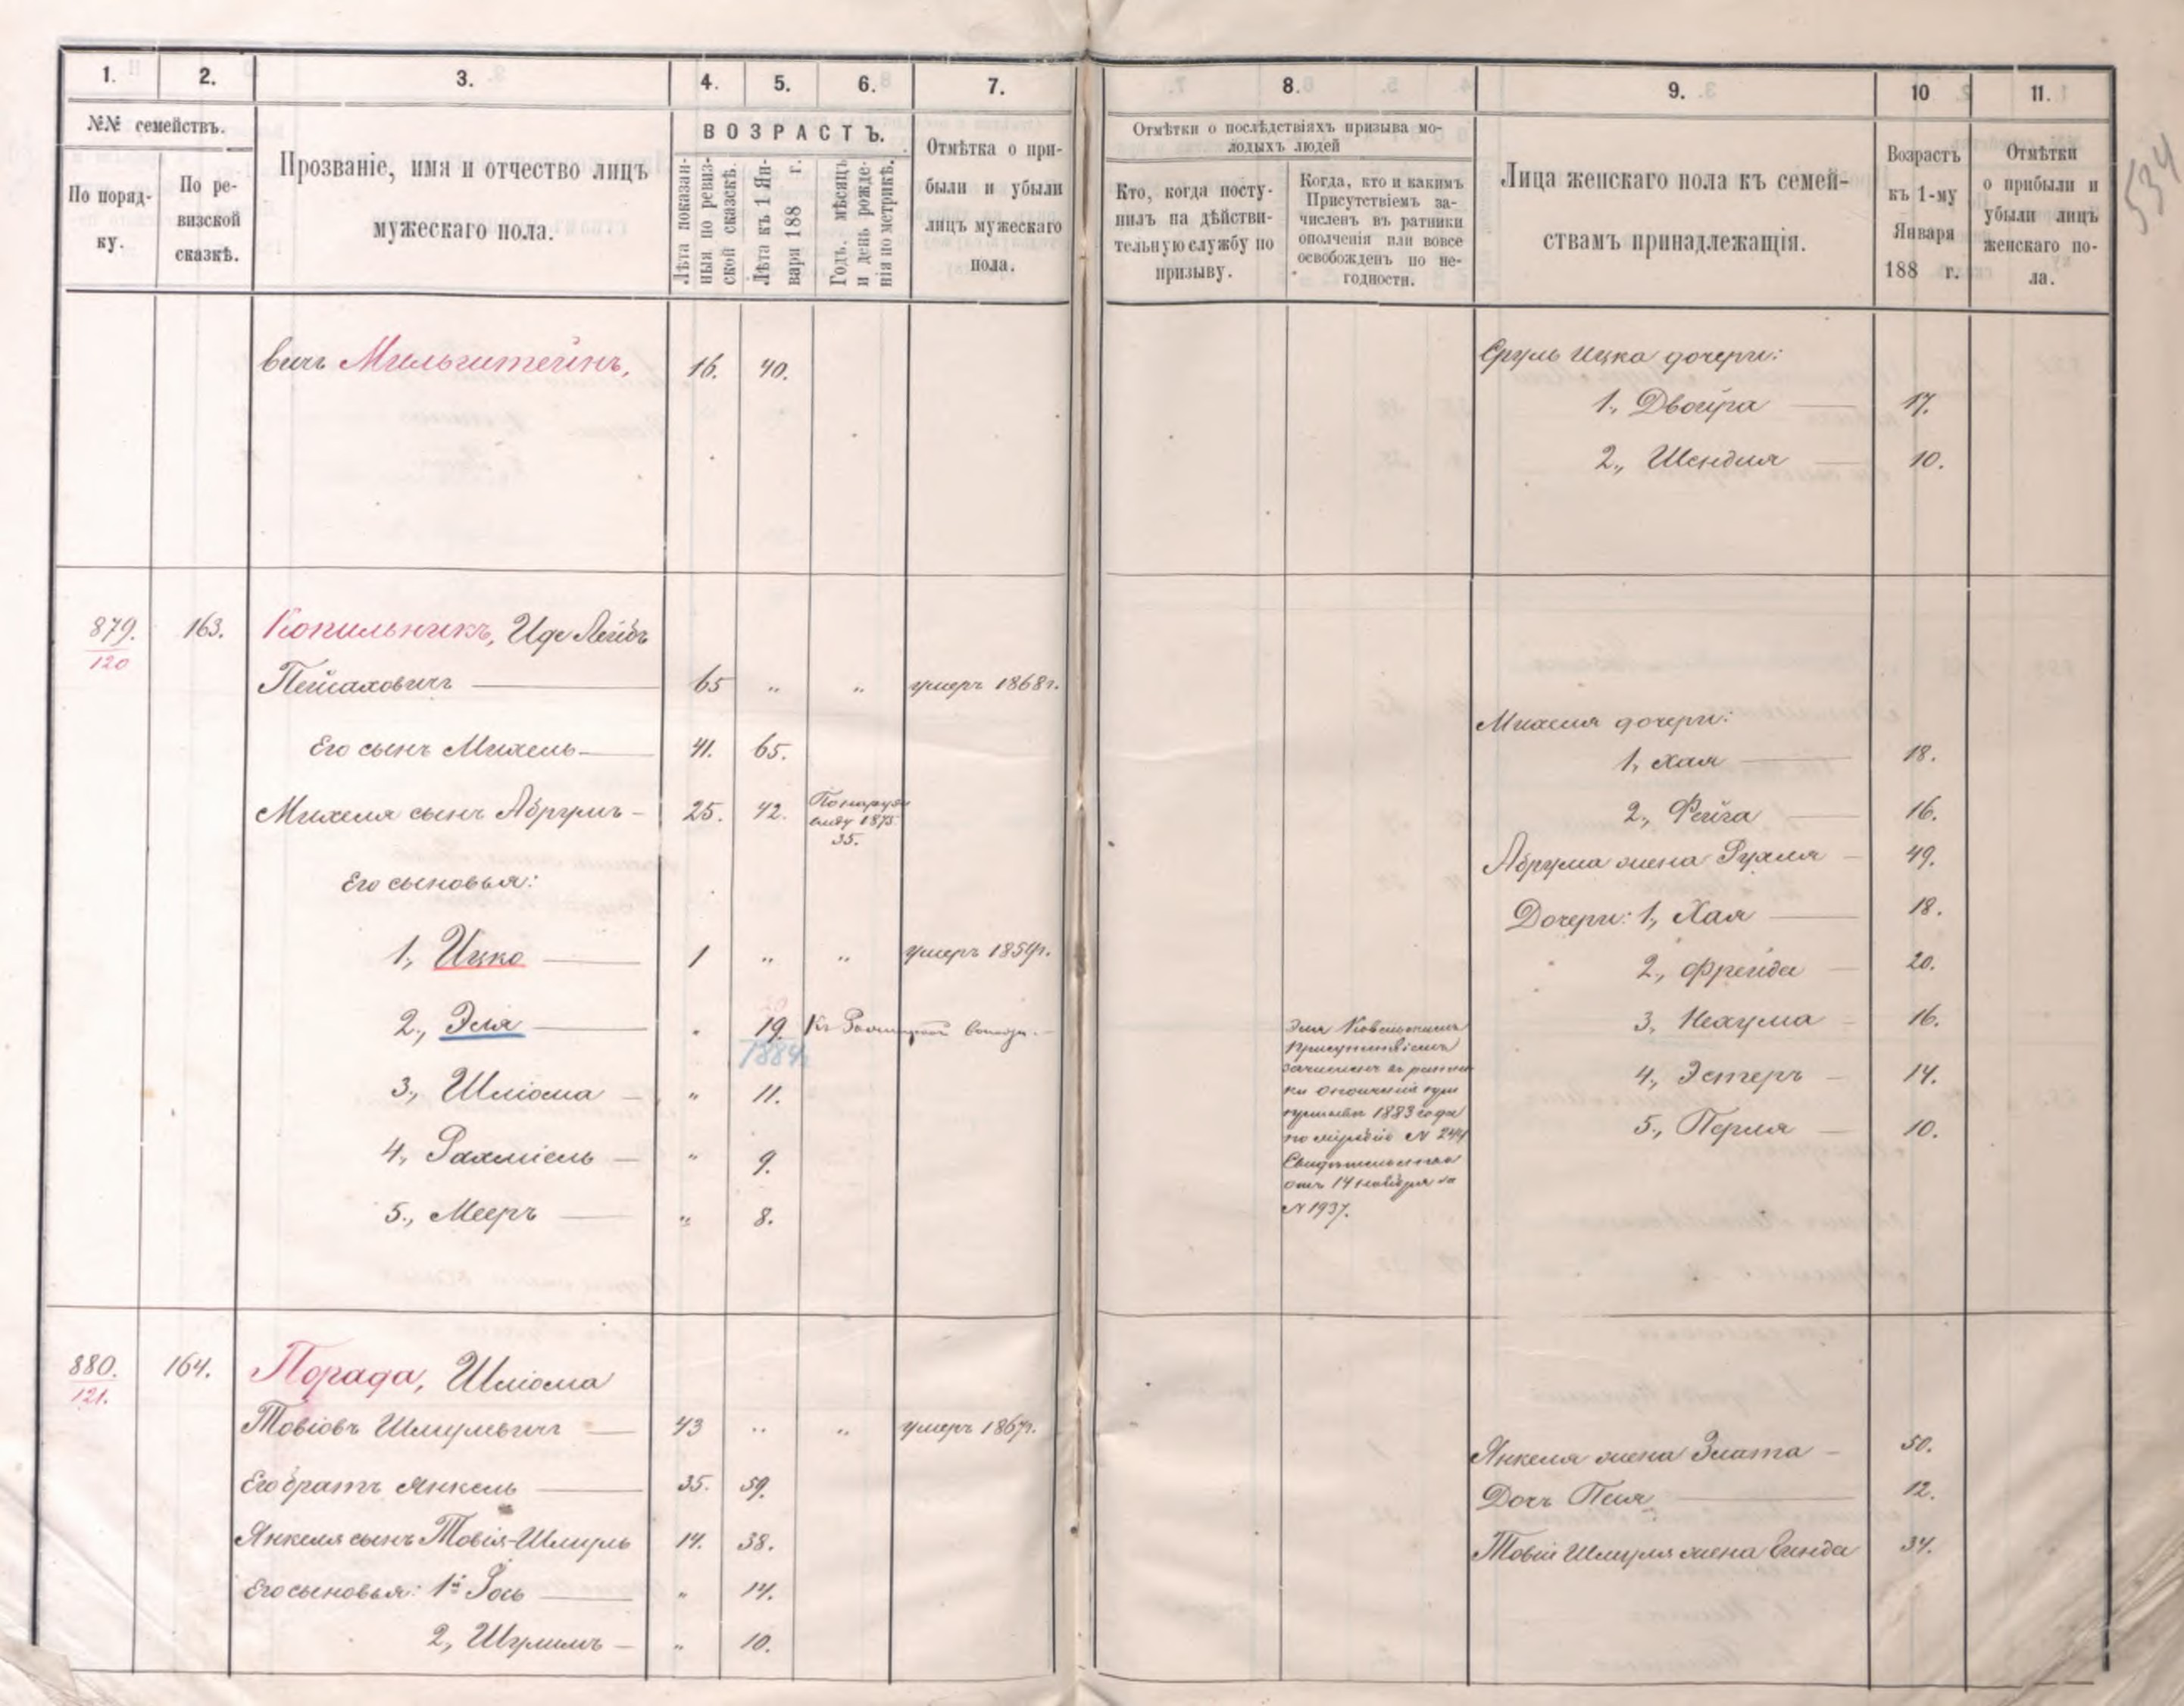 1. 2. 3. 4. 5. 6. 7. 8. 9. 10 11.
№№ семействъ.
По поряд-
ку.
По ре-
визской
сказкѣ.
Прозваніе, имя и отчество лицъ
мужескаго пола.
ВОЗРАСТЪ.
Лѣта показан-
ныя по ревиз-
ской сказкѣ.
Лѣта къ 1 Ян-
варя 188 г.
Годъ, мѣсяцъ
и день рожде-
нія по метрикѣ.
Отмѣтка о при-
были и убыли
лицъ мужескаго
пола.
Отмѣтки о послѣдствіяхъ призыва мо-
лодыхъ людей
Кто, когда посту-
пилъ на дѣйстви-
тельную службу по
призыву.
Когда, кто и какимъ
Присутствіемъ за-
численъ въ ратники
ополченія или вовсе
освобожденъ по не-
годности.
Лица женскаго пола къ семей-
ствамъ принадлежащія.
Возрастъ
къ 1-му
Января
188 г.
Отмѣтки
о прибыли и
убыли лицъ
женскаго по-
ла.
534
вичъ Мильштейнъ, 16. 40.
Сруль Ицка дочери:
1, Двойра 17.
2, Шендля 10.
879. 163. Копильникъ, Иде Лейбъ
120
Пейсаховичъ 65 " " умеръ 1868г.
Его сынъ Михель 41. 65.
Михеля сынъ Абрумъ 25. 42. По наруж
виду 1875.
35.
Его сыновья:
1, Ицко 1 " " умеръ 1859г.
2, Эля " 20
19. Къ
1884г.
3, Шліома " 11.
4, Рахміель " 9.
5, Мееръ " 8.
Эля Ковельскимъ
Присутствіемъ
зачисленъ въ ратни
ки ополченія при
призывѣ 1883 года
по жребію № 244
Свидѣтельство
отъ 14 ноября за
№ 1937.
Михеля дочери:
1, Хая 18.
2, Фейга 16.
Абрума жена Рухля 49.
Дочери: 1, Хая 18.
2, Фрейда 20.
3, Нехума 16.
4, Эстеръ 14.
5, Перля 10.
880. 164. Порада, Шліома
121.
Товіовъ Шмулевичъ 43 " " умеръ 1867г.
Его братъ Янкель 35. 59.
Янкеля сынъ Товія-Шмуль 14. 38.
Его сыновья: 1й Іось " 14.
2, Шулимъ " 10.
Янкеля жена Злата 50.
Дочь Песя 12.
Товіи Шмуля жена Гинда 34.